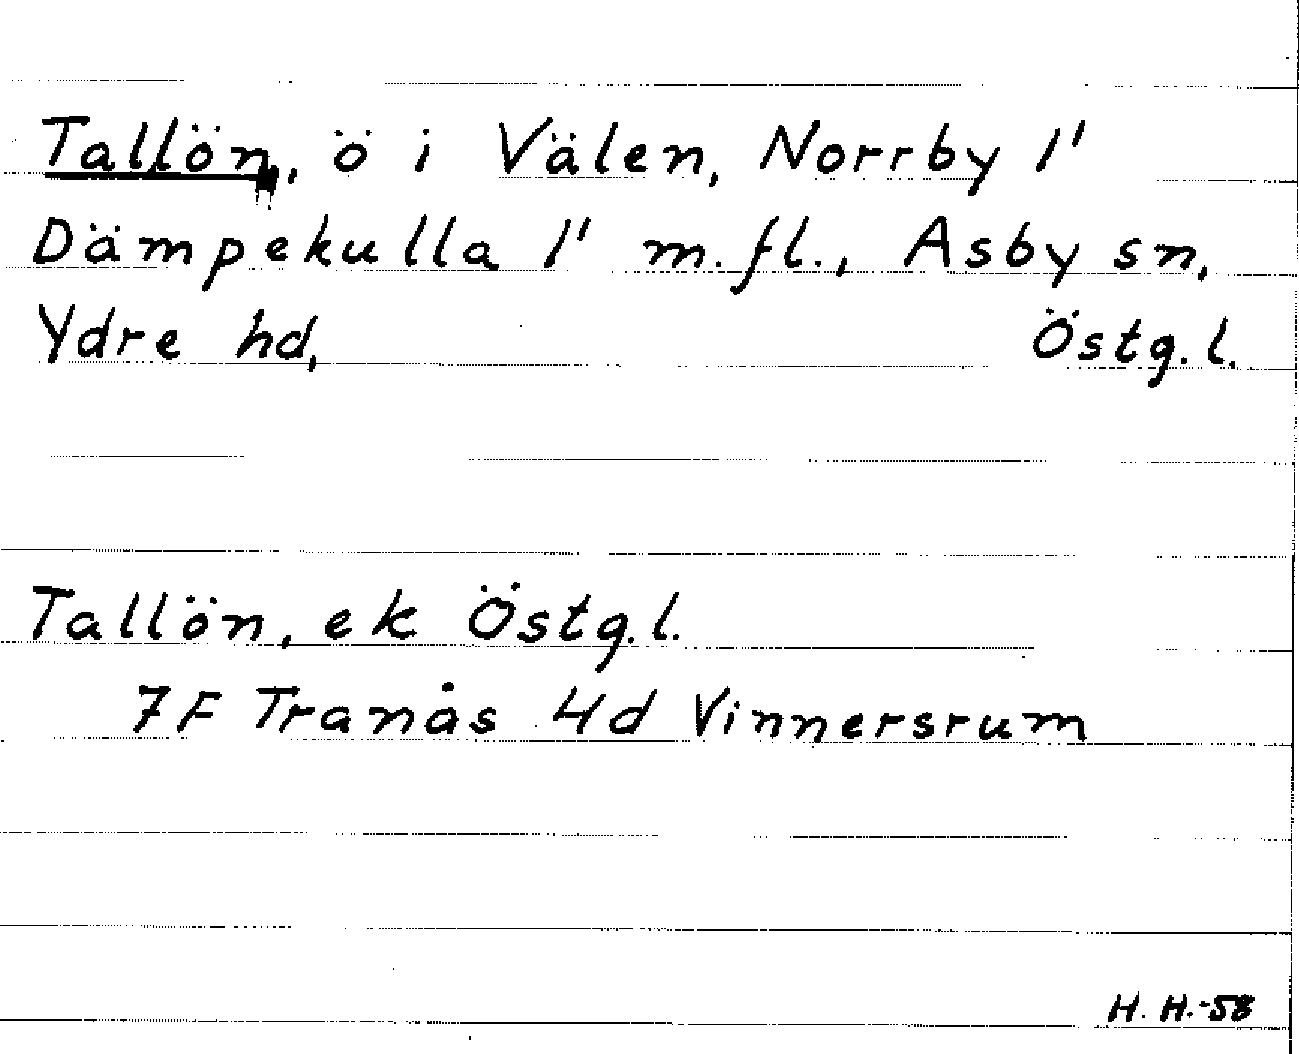 Tallön, ö i Välen, Norrby 1'
Dämpekulla 1' m.fl., Asby sn,
Ydre hd, Östg.l.
Tallön, ek Östg.l.
7F Tranås 4d Vinnersrum
H.H.-58